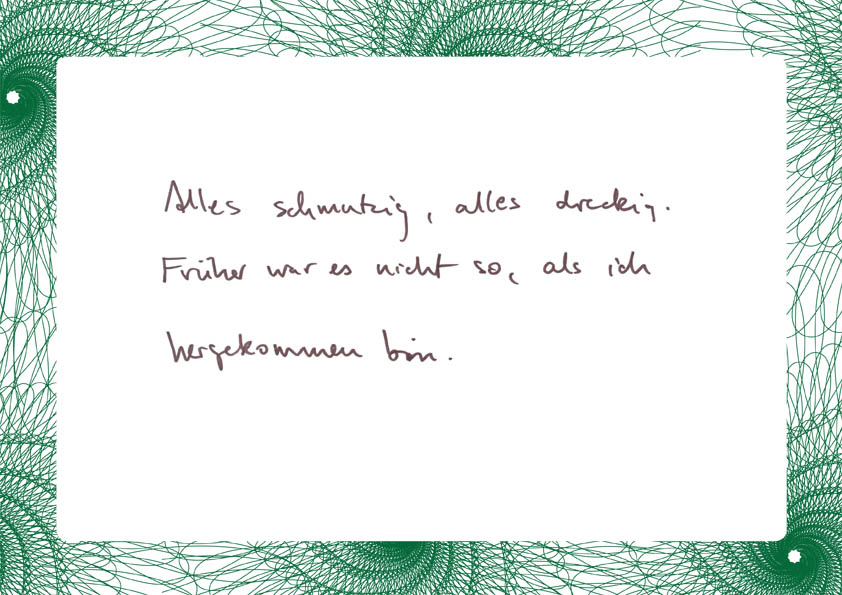 Alles schmutzig, alles dreckig.
Früher war es nicht so, als ich
hergekommen bin.